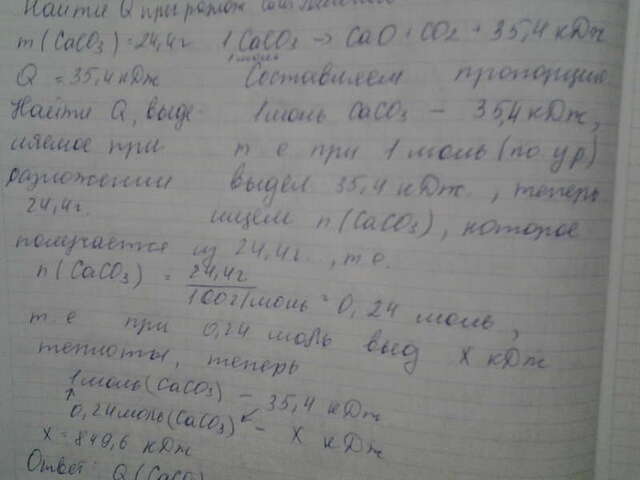 Найти Q при разлож
m(CaCO₃)=24,4г 1CaCO₃ → CaO+CO₂ + 35,4 кДж
1 моль
Q = 35,4 кДж Составляем пропорцию
Найти Q, выде- 1 моль CaCO₃ – 35,4 кДж,
ляемое при т е при 1 моль (по ур)
разложении выдел 35,4 кДж., теперь
24,4г. ищем n(CaCO₃), которое
получается из 24,4г., т.е.
n(CaCO₃) = 24,4г / 100г/моль = 0,24 моль,
т.е при 0,24 моль выд X кДж
теплоты, теперь
1 моль(CaCO₃) – 35,4 кДж
0,24 моль(CaCO₃) – X кДж
X = 849,6 кДж
Ответ: Q (CaCO₃)